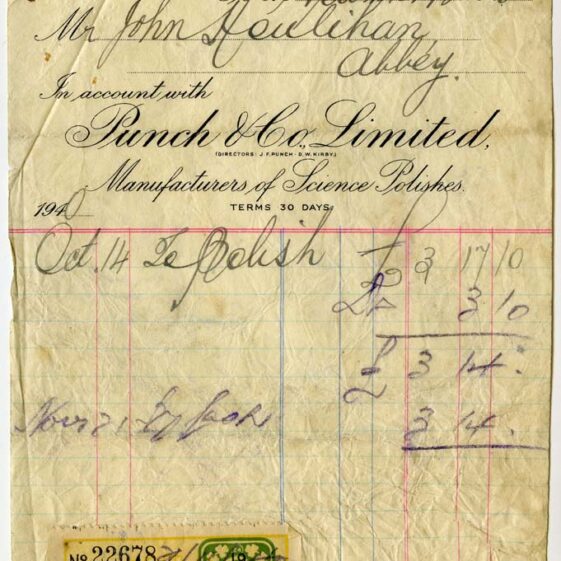 Mr John Houlihan
Abbey.
In account with
Punch & Co., Limited,
(DIRECTORS: J. F. PUNCH - D. W. KIRBY.)
Manufacturers of Science Polishes.
1940 TERMS 30 DAYS
Oct. 14 To Polish £ 3 17 10
3 10
£ 3 14 .
Nov 21 By Cash 3 14 .
No 22678